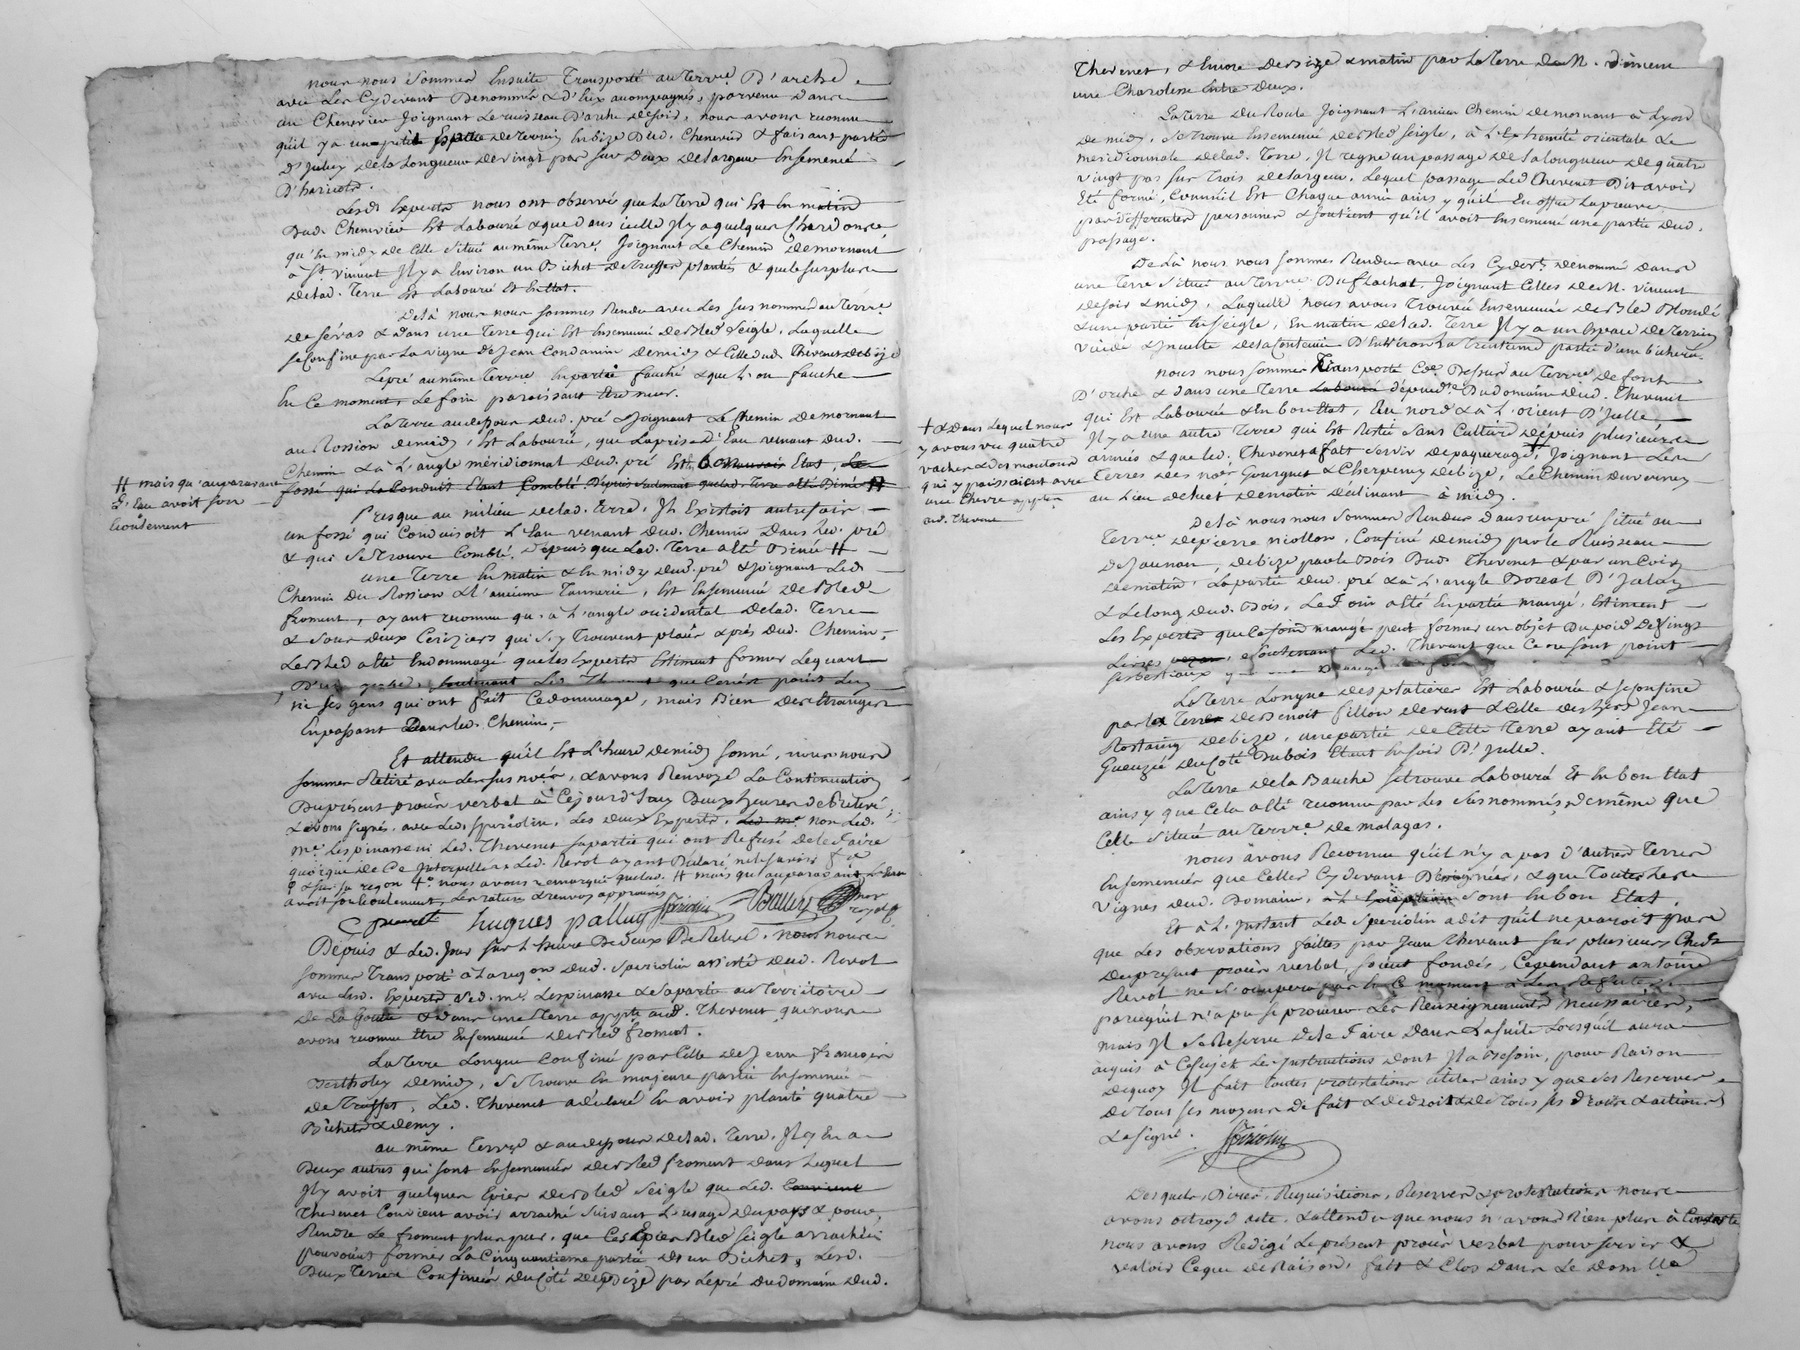 nous nous sommes Ensuite Transporté au Terre D'arche
avec Les Cydevant Denommés & d'Eux accompagnés, parvenu dans
un Chenevier Joignant Le ruisseau D'arche de soir, nous avons reconnu
qu'il y a un petit Espace de Terrein En bize Dud. Chenevier & faisant partie
d'Iceluy de la Longueur de vingt pas sur Deux de largeur Ensemencé
D'haricots.
Lesd. Experts nous ont observés que La Terre qui Est En matin
Dud. Chenevier Est Labourée & que dans icelle Il y a quelques Chardons
qu'En midy de Celle Située au même Terre. Joignant Le Chemin de mornant
à St. vincent Il y a Environ un Bichet de Truffes plantés & que le surplus
de lad. Terre Est Labourée Et En Etat.
De là nous nous sommes Rendu avec Les sus nommés au Terre
de seras & dans une Terre qui Est Ensemencée de Bled seigle, Laquelle
se Confine par La vigne de Jean Condamin de midy & Celle dud. Thevenet de bize
Le pré au même Terre En partie fauché & que L'on fauche
En Ce moment, Le foin paroissant Etre meur.
La Terre au dessous Dud. pré & Joignant Le Chemin de mornant
au Rossion de midy, Est Labourée, que La prise d'Eau venant dud.
Chemin & à L'angle méridional Dud. pré Est bon mauvais Etat, Le
fossé qui La Conduit Etant Comblé Depuis que lad. Terre a été Binée #
# mais qu'auparavant
L'Eau avoit son
Ecoulement
Presque au milieu de lad. Terre, Il Existoit autrefois
un fossé qui Conduisoit L'Eau venant dud. Chemin Dans led. pré
& qui se trouve Comblé. Depuis que Lad. Terre a été Binée #
une Terre En matin & En midy dud. pré & Joignant Led.
Chemin Du Rossion & L'ancienne Tannerie, Est Ensemencée de Bled
froment, ayant reconnu qu'à L'angle occidental de lad. Terre
& sous deux Ceriziers qui S'y Trouvent plantés & près Dud. Chemin,
Le Bled a été Endommagé que les Experts Estiment former Le quart
D'une gerbe, soutenant Led. Thevenet que Ce n'est point Luy
ni ses gens qui ont fait Ce dommage, mais Bien des Etrangers
En passant Dans led. Chemin,
Et attendu qu'il Est L'heure de midy sonné, nous nous
sommes Retiré avec Les sus nommés, & avons Renvoyé La Continuation
Du présent procès verbal à Cejourd'huy Deux heures de Relevé
& avons signés, avec Led. Speziolin, Les deux Experts, Led. me. non Led.
me. Lespinasse ni Led. Thevenet sa partie qui ont Refusé de le faire
quoique de Ce Interpellés Led. Revol ayant Declaré ne le savoir
4e. nous avons remarqué que lad. # mais qu'auparavant L'Eau
avoit son Ecoulement, Les ratures & renvoy approuvés
hugues pallug Speziolin
Depuis & Led. Jour sur L'heure De deux De Relevé, nous nous
sommes Transporté à la reqon dud. Speziolin assisté dud. Revol
avec Lesd. Experts & led. me. Lespinasse & sa partie au Territoire
De La Goutte & dans une Terre appte. aud. Thevenet que nous
avons reconnu Etre Ensemencée de Bled froment.
La Terre Longue Confinée par Celle de Jean françois
Bertholey de midy, Se trouve En majeure partie Ensemencée
de Truffes, Led. Thevenet a déclaré En avoir planté quatre
Bichets & demy.
au même Terre & au dessous de lad. Terre, Il y En a
Deux autres qui sont Ensemencées de Bled froment dans Lequel
Il y avoit quelques Epies de Bled seigle que Led. Convient
Thevenet Convient avoir arraché suivant L'usage du pays & pour
Rendre Le froment plus pur, que Ces Epies Bled seigle arrachées
pouvoient former La Cinquantieme partie de un Bichet, Lesd.
Deux Terres Confinées du Coté de Bize par Le pré du Domaine Dud.
Thevenet, & Encore de bize & matin par La Terre de M. d'imene
une Charoliere Entre Deux.
La Terre du Route Joignant L'ancien Chemin de mornant à Lyon
de midy, Se trouve Ensemencée de Bled seigle, à L'Extremité orientale Le
meridionnale de lad. Terre, Il regne un passage de la longueur de quatre
vingt pas sur Trois de largeur. Lequel passage Led. Thevenet Dit avoir
Eté formé, Comme il Est Chaque année ainsy qu'il En offre La preuve
par differentes personnes & soutient qu'il avoit Ensemencé une partie dud.
passage.
De Là nous nous sommes Rendu avec Les Cydevt. denommé dans
une Terre située au Terre Du flachat, Joignant Celles de M. vincent
de soir & midy, Laquelle nous avons Trouvée Ensemencée de Bled Blondé
& une partie En seigle, En matin de lad. Terre Il y a un Espace de Terrein
vuide & Inculte de la Contenue D'Environ La Trentieme partie d'une bicherée.
nous nous sommes Transporté Coe. Dessus au Terre de font
D'orche & dans une Terre Labourée dépendte. Du domaine Dud. Thevenet
qui Est Labourée & En bon Etat, Eu nord & à L'orient D'Icelle
Il y a une autre Terre qui Est Restée sans Culture depuis plusieurs
années & que led. Thevenet a fait servir de paquerage, Joignant Les
Terres des nors. Gourguet & Cherpenay de bize, Le Chemin du verney
au Lieu de huet de matin déclinant à midy.
+ & dans Lequel nous
y avons vu quatre
vaches & des moutons
qui y paissoient avec
une Chevre appten.
aud. Thevenet
De là nous nous sommes Rendus dans un pré situé au
Terre de pierre niollon, Confiné de midy par le Ruisseau
de Jaunan, de bize par le Bois Dud. Thevenet & par un Coin
de matin, La partie dud. pré & à L'angle Boreal D'Icelluy
& Le long dud. Bois, Le foin a été En partie mangé, Estiment
Les Experts que Le foin mangé peut former un objet Du poid de vingt
Livres, & soutenant Led. Thevenet que Ce ne sont point
ses bestiaux
La Terre Longue des platieres Est Labourée & se Confine
par La Terre de Benoit fillon de vent & Celle des hers. Jean
Rostaing de bize, une partie de Cette Terre ayant Eté
Gueuzée du Coté Dubois Etant En soir D'Icelle.
La Terre de la Bauche se trouve Labourée Et En bon Etat
ainsy que Cela a été reconnu par Les sus nommés, de même que
Celle située au Terre. de malagas.
nous avons Reconnu qu'il n'y a pas D'autres Terres
Ensemencées que Celles Cydevant Désignées, & que Toutes Les
vignes dud. Domaine, à L'Exception sont En bon Etat.
Et à L'Instant Led. Speziolin a dit qu'il ne paroit pas
que Les observations faites par Jean Thevenet sur plusieurs Chefs
du présent procès verbal, soient fondés, Cependant antoine
Revol ne S'occupera pas En Ce moment à Les Refuter
parce qu'il n'a pu se procurer Les Renseignements necessaires,
mais Il se Reserve de le faire Dans La suite Lorsqu'il aura
acquis à Ce sujet Les Instructions dont Il a Besoin, pour Raison
de quoy Il fait toutes protestations utiles ainsy que des Reserves
de Tous ses moyens de fait & de droit & de Tous ses droits & actions
& a signé. Speziolin
Desquels, Dires, Requisitions, Reserves & protestations nous
avons octroyé acte. & attendu que nous n'avons Rien plus à Constate
nous avons Redigé Le présent procès verbal pour servir &
valoir Ce que de Raison, fait & Clos Dans Le Domlle